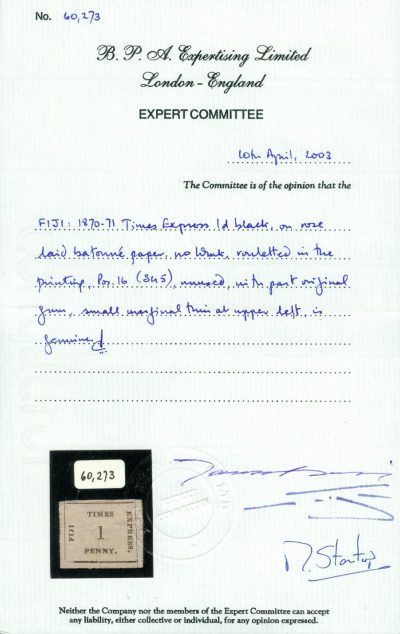 No. 60,273
B. P. A. Expertising Limited
London - England
EXPERT COMMITTEE
10th April, 2003
The Committee is of the opinion that the
FIJI: 1870-71 Times Express 1d black, on rose
laid batonné paper, no wmk, rouletted in the
printing, Pos. 16 (SG5), unused, with part original
gum, small marginal thin at upper left, is
genuine.
60,273
TIMES
FIJI 1 EXPRESS.
PENNY.
Neither the Company nor the members of the Expert Committee can accept
any liability, either collective or individual, for any opinion expressed.